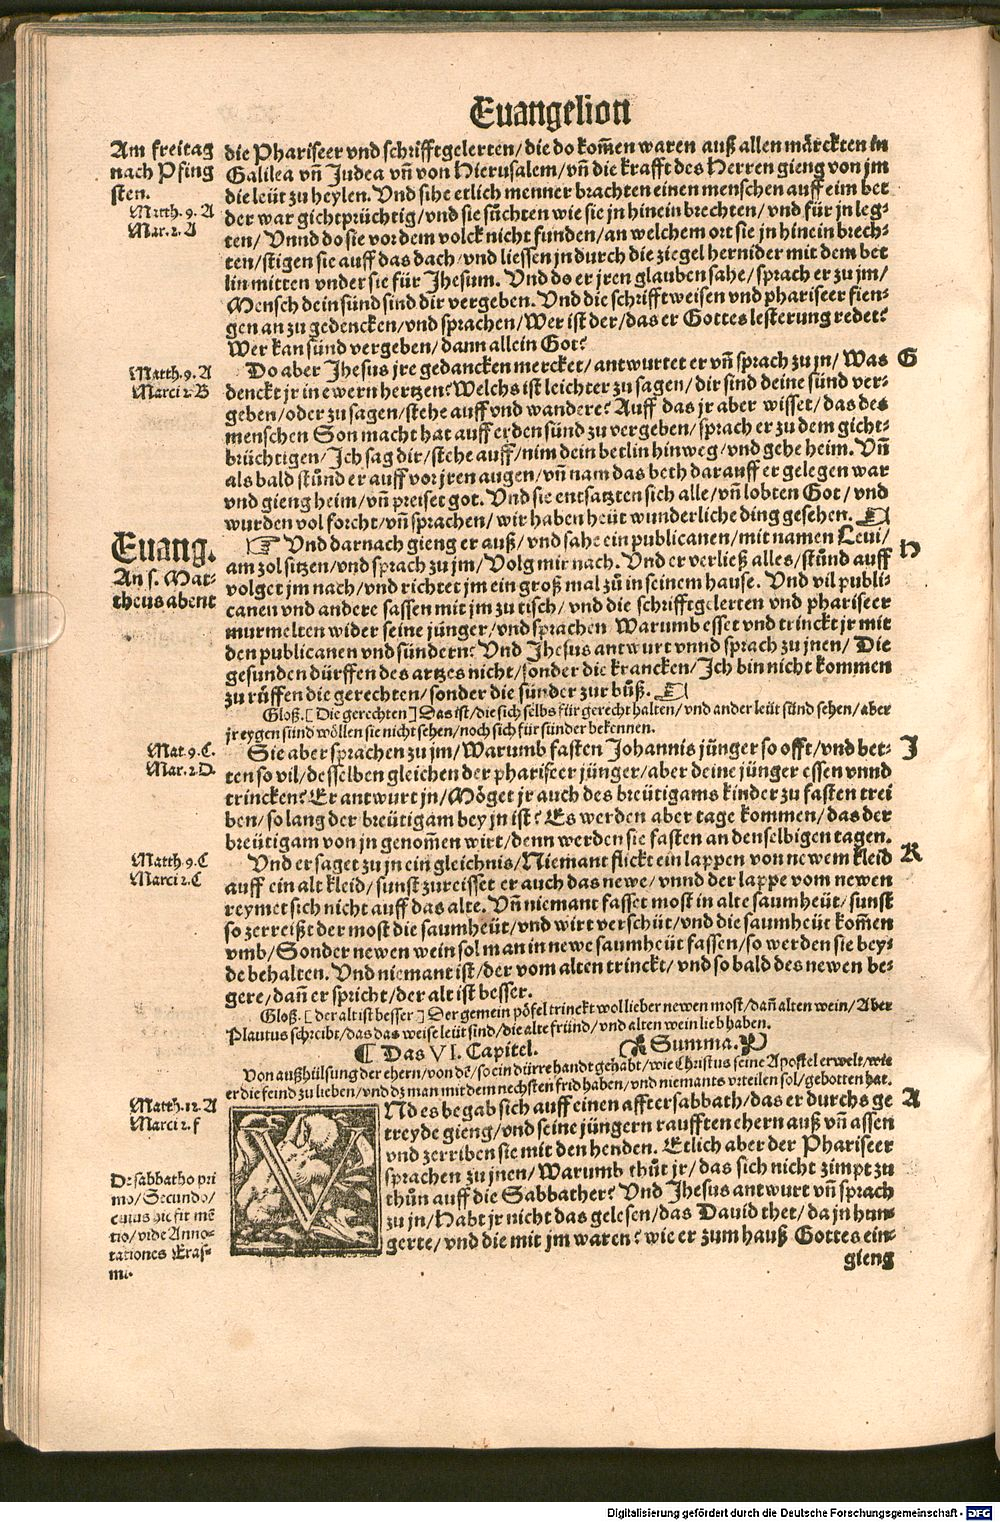 Euangelion
Am freitag
nach Pfing
sten.
Matth. 9. A
Mar. 2. A
die Phariseer vnd schrifftgelerten/ die do kom̃en waren auß allen märckten in
Galilea vñ Judea vñ von Hierusalem/ vñ die krafft des Herren gieng von jm
die leüt zu heylen. Vnd sihe etlich menner brachten einen menschen auff eim bet
der war gichtprüchtig/ vnd sie sůchten wie sie jn hinein brechten/ vnd für jn leg-
ten/ Vnnd do sie vor dem volck nicht funden/ an welchem ort sie jn hinein brech-
ten/ stigen sie auff das dach/ vnd liessen jn durch die ziegel hernider mit dem bet
lin mitten vnder sie für Jhesum. Vnd do er jren glauben sahe/ sprach er zu jm/
Mensch dein sünd sind dir vergeben. Vnd die schrifftweisen vnd phariseer fien-
gen an zu gedencken/ vnd sprachen/ Wer ist der/ das er Gottes lesterung redet?
Wer kan sünd vergeben/ dann allein Got?
Matth. 9. A
Marci 2. B
Do aber Jhesus jre gedancken mercket/ antwurtet er vñ sprach zu jn/ Was
G
denckt jr in ewern hertzen? Welchs ist leichter zu sagen/ dir sind deine sünd ver-
geben/ oder zu sagen/ stehe auff vnd wandere? Auff das jr aber wisset/ das des
menschen Son macht hat auff erden sünd zu vergeben/ sprach er zu dem gicht-
brüchtigen/ Ich sag dir/ stehe auff/ nim dein betlin hinweg/ vnd gehe heim. Vñ
als bald stůnd er auff vor jren augen/ vñ nam das beth darauff er gelegen war
vnd gieng heim/ vñ preiset got. Vnd sie entsatzten sich alle/ vñ lobten Got/ vnd
wurden vol forcht/ vñ sprachen/ wir haben heüt wunderliche ding gesehen.
Euang.
An s. Mat-
theus abent
Vnd darnach gieng er auß/ vnd sahe ein publicanen/ mit namen Leui/
H
am zol sitzen/ vnd sprach zu jm/ Volg mir nach. Vnd er verließ alles/ stůnd auff
volget jm nach/ vnd richtet jm ein groß mal zů in seinem hause. Vnd vil publi-
canen vnd andere sassen mit jm zu tisch/ vnd die schrifftgelerten vnd phariseer
murmelten wider seine jünger/ vnd sprachen Warumb esset vnd trinckt jr mit
den publicanen vnd sündern? Vnd Jhesus antwurt vnnd sprach zu jnen/ Die
gesunden dürffen des artzes nicht/ sonder die krancken/ Ich bin nicht kommen
zu rüffen die gerechten/ sonder die sünder zur bůß.
Gloß. [ Die gerechten ] Das ist/ die sich selbs für gerecht halten/ vnd ander leüt sünd sehen/ aber
jr eygen sünd wöllen sie nicht sehen/ noch sich für sünder bekennen.
Mat. 9. C.
Mar. 2. D.
Sie aber sprachen zu jm/ Warumb fasten Johannis jünger so offt/ vnd bet-
J
ten so vil/ desselben gleichen der phariseer jünger/ aber deine jünger essen vnnd
trincken? Er antwurt jn/ Möget jr auch des breütigams kinder zu fasten trei
ben/ so lang der breütigam bey jn ist? Es werden aber tage kommen/ das der
breütigam von jn genom̃en wirt/ denn werden sie fasten an denselbigen tagen.
Matth. 9. C
Marci 2. C
Vnd er saget zu jn ein gleichnis/ Niemant flickt ein lappen von newem kleid
K
auff ein alt kleid/ sunst zureisset er auch das newe/ vnnd der lappe vom newen
reymet sich nicht auff das alte. Vñ niemant fasset most in alte saumheüt/ sunst
so zerreißt der most die saumheüt/ vnd wirt verschüt/ vnd die saumheüt kom̃en
vmb/ Sonder newen wein sol man in newe saumheüt fassen/ so werden sie bey-
de behalten. Vnd niemant ist/ der vom alten trinckt/ vnd so bald des newen be-
gere/ dañ er spricht/ der alt ist besser.
Gloß. [ der alt ist besser ] Der gemein pöfel trinckt wol lieber newen most/ dañ alten wein/ Aber
Plautus schreibt/ das das weise leüt sind/ die alte fründ/ vnd alten wein lieb haben.
¶ Das VI. Capitel. Summa.
Von außhülsung der ehern/ von dẽ/ so ein dürre handt gehabt/ wie Christus seine Apostel erwelt/ wie
er die feind zu lieben/ vnd dz man mit dem nechsten frid haben/ vnd niemants vrteilen sol/ gebotten hat.
Matth. 12. A
Marci 2. f
VNd es begab sich auff einen afftersabbath/ das er durchs ge
A
treyde gieng/ vnd seine jüngern raufften ehern auß vñ assen
vnd zerriben sie mit den henden. Etlich aber der Phariseer
sprachen zu jnen/ Warumb thůt jr/ das sich nicht zimpt zu
thůn auff die Sabbather? Vnd Jhesus antwurt vñ sprach
zu jn/ Habt jr nicht das gelesen/ das Dauid thet/ da jn hun-
gerte/ vnd die mit jm waren? wie er zum hauß Gottes ein-
gieng
De sabbatho pri
mo/ Secundo/
cuius hic fit mẽ
tio/ vide Anno-
tationes Eras-
mi.
Digitalisierung gefördert durch die Deutsche Forschungsgemeinschaft - DFG